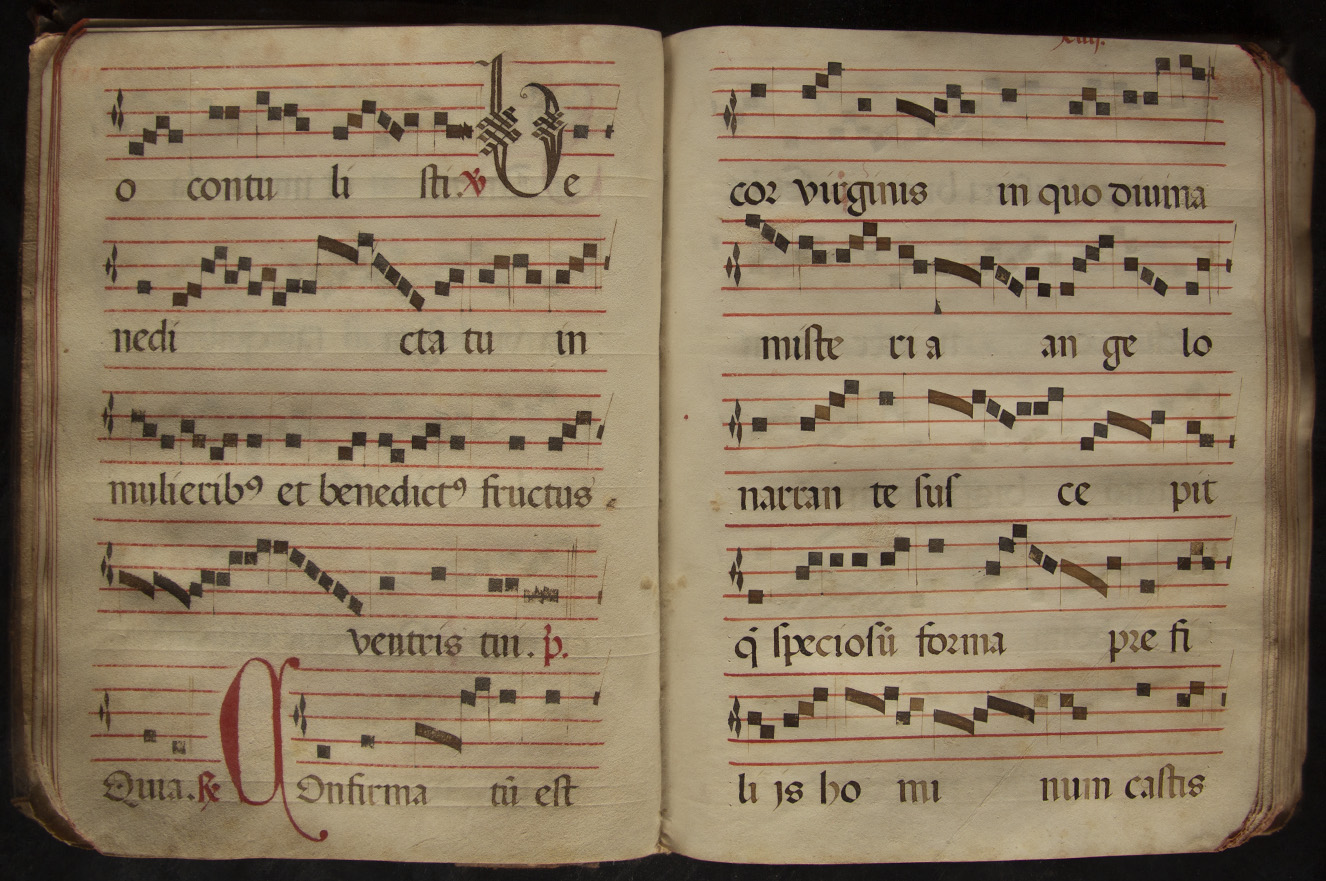 o contu li sti. ℣ Be
nedi cta tu in
mulieribꝰ et benedictꝰ fructus
ventris tui. p̃.
Quia. Confirma tū est
xiiij.
cor virginis in quo diuina
miste ri a an ge lo
narran te sus ce pit
q̄ speciosū forma pre fi
li js ho mi num castis